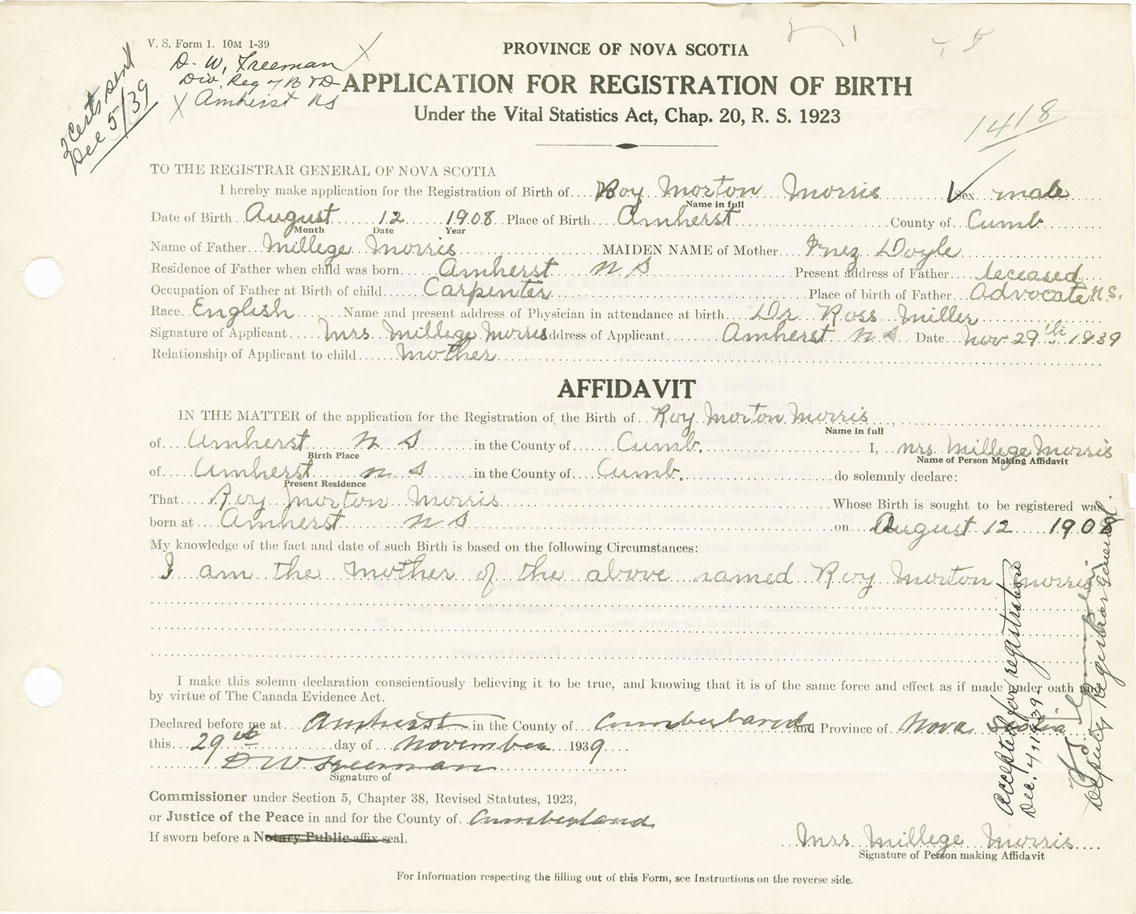 V. S. Form 1. 10M 1-39
D. W. Freeman X
Div. Reg of B & D
X Amherst NS
2 Certs sent
Dec 5/39
PROVINCE OF NOVA SCOTIA
APPLICATION FOR REGISTRATION OF BIRTH
Under the Vital Statistics Act, Chap. 20, R. S. 1923
1418
TO THE REGISTRAR GENERAL OF NOVA SCOTIA
I hereby make application for the Registration of Birth of Roy Morton Morris Sex male
Name in full
Date of Birth August 12 1908 Place of Birth Amherst County of Cumb
Month Date Year
Name of Father Millege Morris MAIDEN NAME of Mother Inez Doyle
Residence of Father when child was born Amherst N S Present address of Father deceased
Occupation of Father at Birth of child Carpenter Place of birth of Father Advocate N.S.
Race English Name and present address of Physician in attendance at birth Dr Ross Miller
Signature of Applicant Mrs Millege Morris Address of Applicant Amherst N S Date Nov 29th 1939
Relationship of Applicant to child Mother
AFFIDAVIT
IN THE MATTER of the application for the Registration of the Birth of Roy Morton Morris
Name in full
of Amherst N S in the County of Cumb. I, Mrs. Millege Morris
Birth Place Name of Person Making Affidavit
of Amherst N S in the County of Cumb. do solemnly declare:
Present Residence
That Roy Morton Morris Whose Birth is sought to be registered was
born at Amherst N S on August 12 1908
My knowledge of the fact and date of such Birth is based on the following Circumstances:
I am the Mother of the above named Roy Morton Morris
I make this solemn declaration conscientiously believing it to be true, and knowing that it is of the same force and effect as if made under oath and
by virtue of The Canada Evidence Act.
Declared before me at Amherst in the County of Cumberland and Province of Nova Scotia
this 29th day of November 1939
D W Freeman
Signature of
Commissioner under Section 5, Chapter 38, Revised Statutes, 1923,
or Justice of the Peace in and for the County of Cumberland
If sworn before a Notary Public affix seal.
Mrs Millege Morris
Signature of Person making Affidavit
For Information respecting the filling out of this Form, see Instructions on the reverse side.
Accepted for registration
Dec. 4, 1939
Deputy Registrar General.